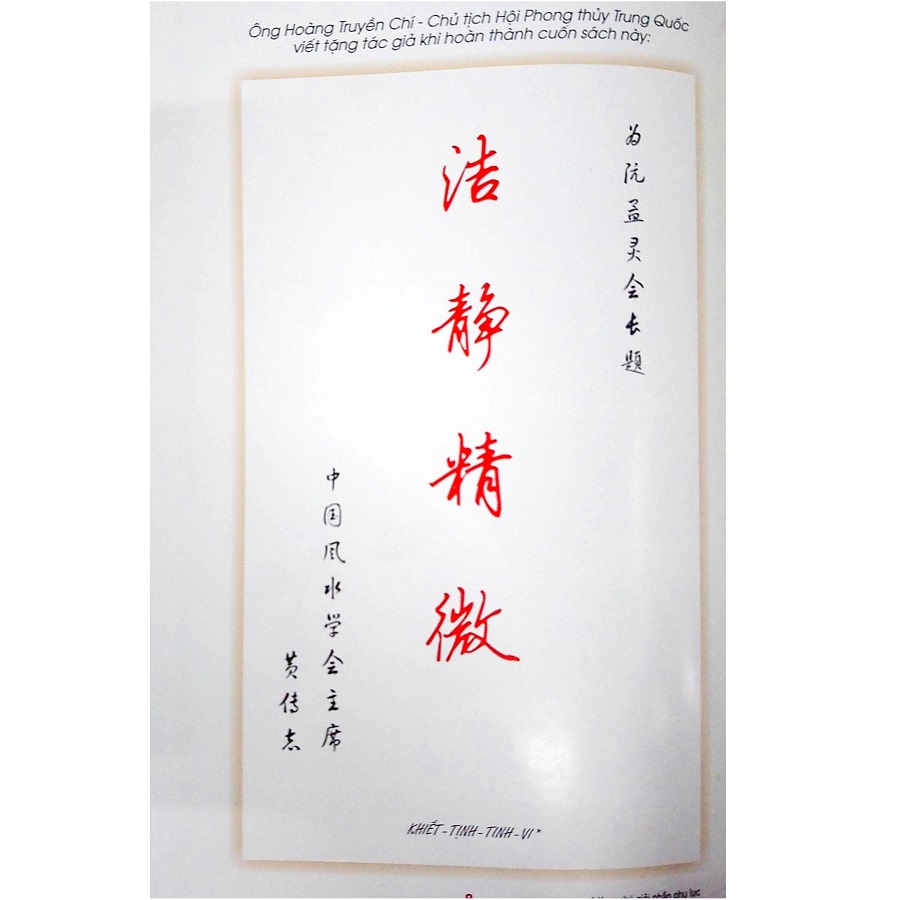 Ông Hoàng Truyền Chí - Chủ tịch Hội Phong thủy Trung Quốc
viết tặng tác giả khi hoàn thành cuốn sách này:
为阮孟灵会长题
洁静精微
中国风水学会主席
黄传志
KHIẾT - TỊNH - TINH - VI *
phần phụ lục